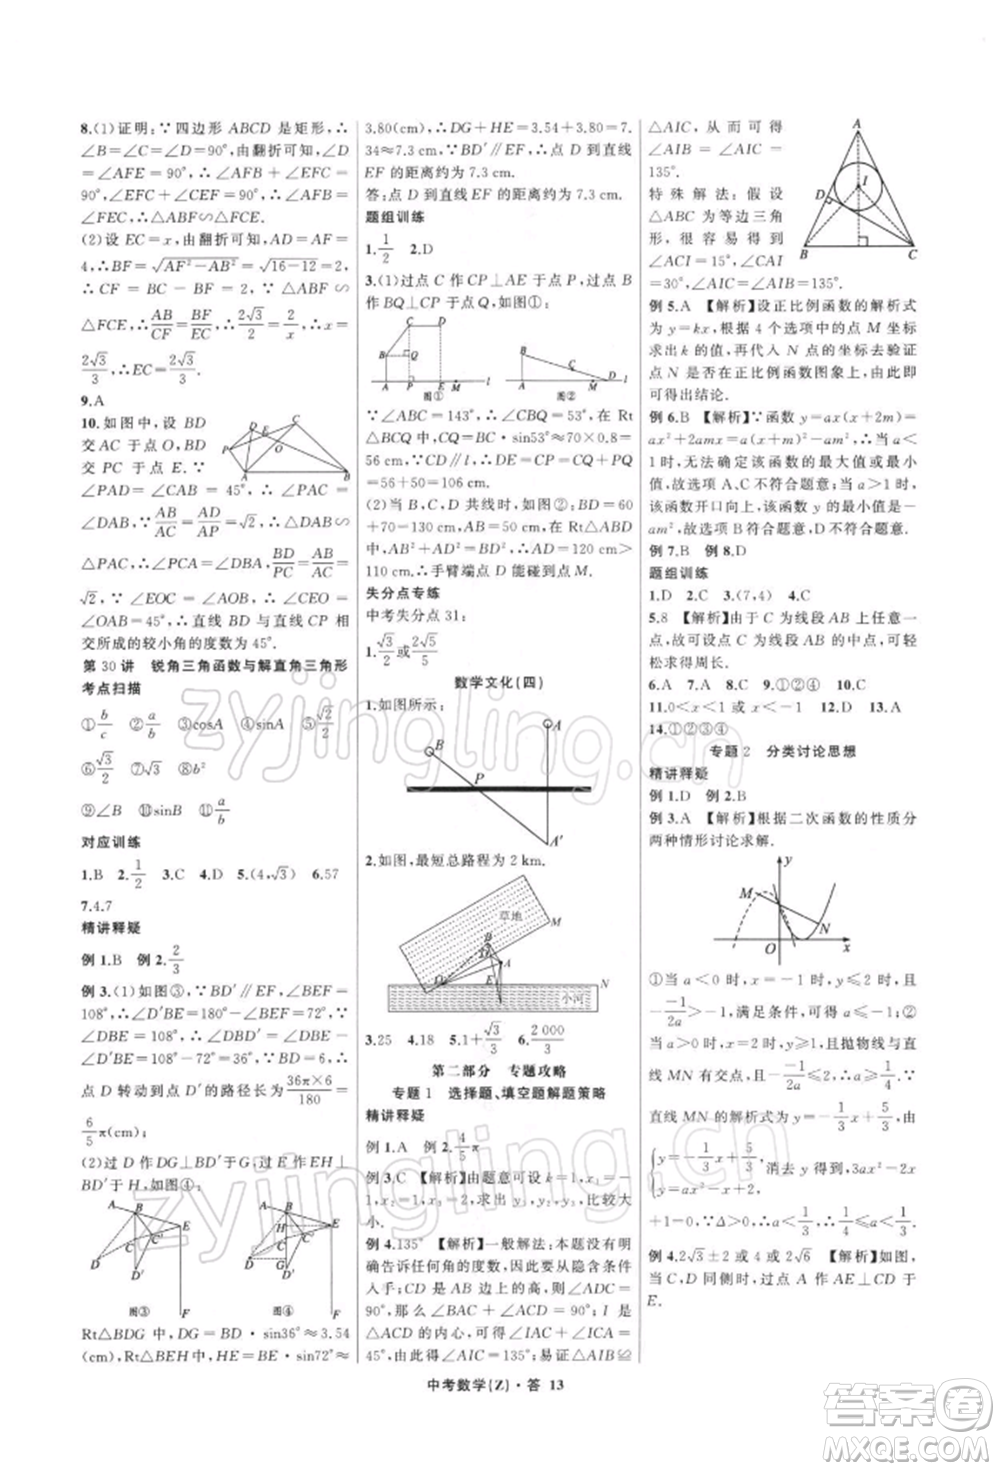 8.(1)证明:∵四边形 ABCD 是矩形,∴
∠B=∠C=∠D=90°,由翻折可知,∠D
=∠AFE=90°,∴∠AFB+∠EFC=
90°,∠EFC+∠CEF=90°,∴∠AFB=
∠FEC.∴△ABF∽△FCE.
(2)设 EC=x,由翻折可知,AD=AF=
4.∴BF=√(AF²-AB²)=√(16-12)=2,∴
CF = BC - BF = 2,∵△ABF∽
△FCE,∴AB/CF=BF/EC,∴2√3/2=2/x,∴x=
2√3/3,∴EC=2√3/3.
9.A
10.如图中,设 BD
交 AC 于点 O,BD
交 PC 于点 E.∵
∠PAD=∠CAB = 45°,∴∠PAC =
∠DAB,∵AB/AC=AD/AP=√2,∴△DAB∽
△PAC,∴∠PCA=∠DBA,BD/PC=AB/AC=
√2,∵∠EOC=∠AOB,∴∠CEO=
∠OAB=45°,∴直线 BD 与直线 CP 相
交所成的较小角的度数为 45°.
第 30 讲 锐角三角函数与解直角三角形
考点扫描
①b/c ②a/b ③cosA ④sinA ⑤√3/2
⑥√2/2 ⑦√3 ⑧b²
⑨∠B ⑩sinB ⑪a/b
对应训练
1.B 2.1/2 3.C 4.D 5.(4,√3) 6.57
7.4.7
精讲释疑
例 1.B 例 2.2/3
例 3.(1)如图③,∵BD′∥EF,∠BEF=
108°,∴∠D′BE=180°-∠BEF=72°,∵
∠DBE = 108°,∴∠DBD′=∠DBE -
∠D′BE=108°-72°=36°,∵BD=6,∴
点 D 转动到点 D′的路径长为36π×6/180=
6/5π(cm);
(2)过 D 作 DG⊥BD′于 G,过 E 作 EH⊥
BD′于 H,如图④:
A B E C C′ D D′ F
图③
A B H E C C′ D G D′ F
图④
Rt△BDG 中,DG=BD·sin36°≈3.54
(cm),Rt△BEH 中,HE=BE·sin72°≈
3.80(cm),∴DG+HE=3.54+3.80=7.
34≈7.3 cm,∵BD′∥EF,∴点 D 到直线
EF 的距离约为 7.3 cm.
答:点 D 到直线 EF 的距离约为 7.3 cm.
题组训练
1.1/2 2.D
3.(1)过点 C 作 CP⊥AE 于点 P,过点 B
作 BQ⊥CP 于点 Q,如图①:
C D B Q A P E M l
图①
B D A M l
图②
∵∠ABC=143°,∴∠CBQ=53°,在 Rt
△BCQ 中,CQ=BC·sin53°≈70×0.8=
56 cm,∵CD∥l,∴DE=CP=CQ+PQ
=56+50=106 cm.
(2)当 B,C,D 共线时,如图②;BD=60
+70=130 cm,AB=50 cm,在 Rt△ABD
中,AB²+AD²=BD²,∴AD=120 cm>
110 cm.∴手臂端点 D 能碰到点 M.
失分点专练
中考失分点 31:
1.√3/2或2√5/5
数学文化(四)
1.如图所示:
A B P A′
2.如图,最短总路程为 2 km.
草地 M B A D E 小河 N
3.25 4.18 5.1+√3/3 6.2 000/3
第二部分 专题攻略
专题 1 选择题、填空题解题策略
精讲释疑
例 1.A 例 2.4/5π
例 3.C 【解析】由题意可设:x₁=-
1,x₂=1,x₃=2,求出 y₁,y₂,y₃ 值作比
较大小.
例 4.135° 【解析】一般解法:本题并未
明告诉任何角的度数,因此要从隐含条件
入手;CD 是 AB 边上的高,则∠ADC=
90°,那么∠BAC +∠ACD = 90°;I 是
△ACD 的内心,可求出∠IAC+∠ICA=
45°,∴∠AIC=135°;易证△AIB≌
△AIC, 从 而 可 得
∠AIB = ∠AIC =
135°.
特 殊 解 法: 假 设
△ABC 为等边三角
形, 很 容 易 得 到
∠ACI=15°,∠CAI
=30°,∠AIC=∠AIB=135°.
A D I B C
例 5.A 【解析】设正比例函数的解析式
为 y=kx,根据 4 个选项中的点 M 坐标
求出 k 的值,再代入 N 点的坐标去验证
点 N 是否在正比例函数图象上,由此即
可得出结论.
例 6.B 【解析】∵函数 y=ax(x+2m)=
ax²+2amx=a(x+m)²-am²,∴当 a<
1时,无法确定该函数的最大值和最小值,
故选项 A、C 不符合题意;当 a>1 时,
该函数开口向上,函数 y 的最小值是-
am²,故选项 B 符合题意,D 不符合题意.
例 7.B 例 8.D
题组训练
1.D 2.C 3.(7,4) 4.C
5.8 【解析】由于 C 为线段 AB 上任意一
点,故可设点 C 为线段 AB 的中点,可轻
松求得周长.
6.A 7.A 8.C 9.①②④ 10.C
11.0<x<1 或 x<-1 12.A 13.A
14.①②③④
专题 2 分类讨论思想
精讲释疑
例 1.D 例 2.B
例 3.A 【解析】根据二次函数的性质分
两种情形讨论求解.
y M N O x
①当 a<0 时,x=-1 时,y≤2 时,且
-(-1)/2a≥-1,满足条件,可得 a≤-1;②
当 a>0 时,x=2 时,y≥1,且抛物线与直
线 MN 有交点,且-(-1)/2a≤2,∴a≥1/4,∵
直线 MN 的解析式为 y=-1/3x+5/3,由
{y=-1/3x+5/3, y=ax²-x+2, 消去 y 得到,3ax²-2x+
1=0,∵Δ>0,∴a<1/3,∴1/4≤a<1/3.
例 4.2√3±2 或 4 或 2√6 【解析】如图,
当 C、D 同侧时,过点 A 作 AE⊥CD 于
E.
中考数学(Z)·答 13
zyjingling.cn
zyjingling.cn
答案圈
MXQE.COM